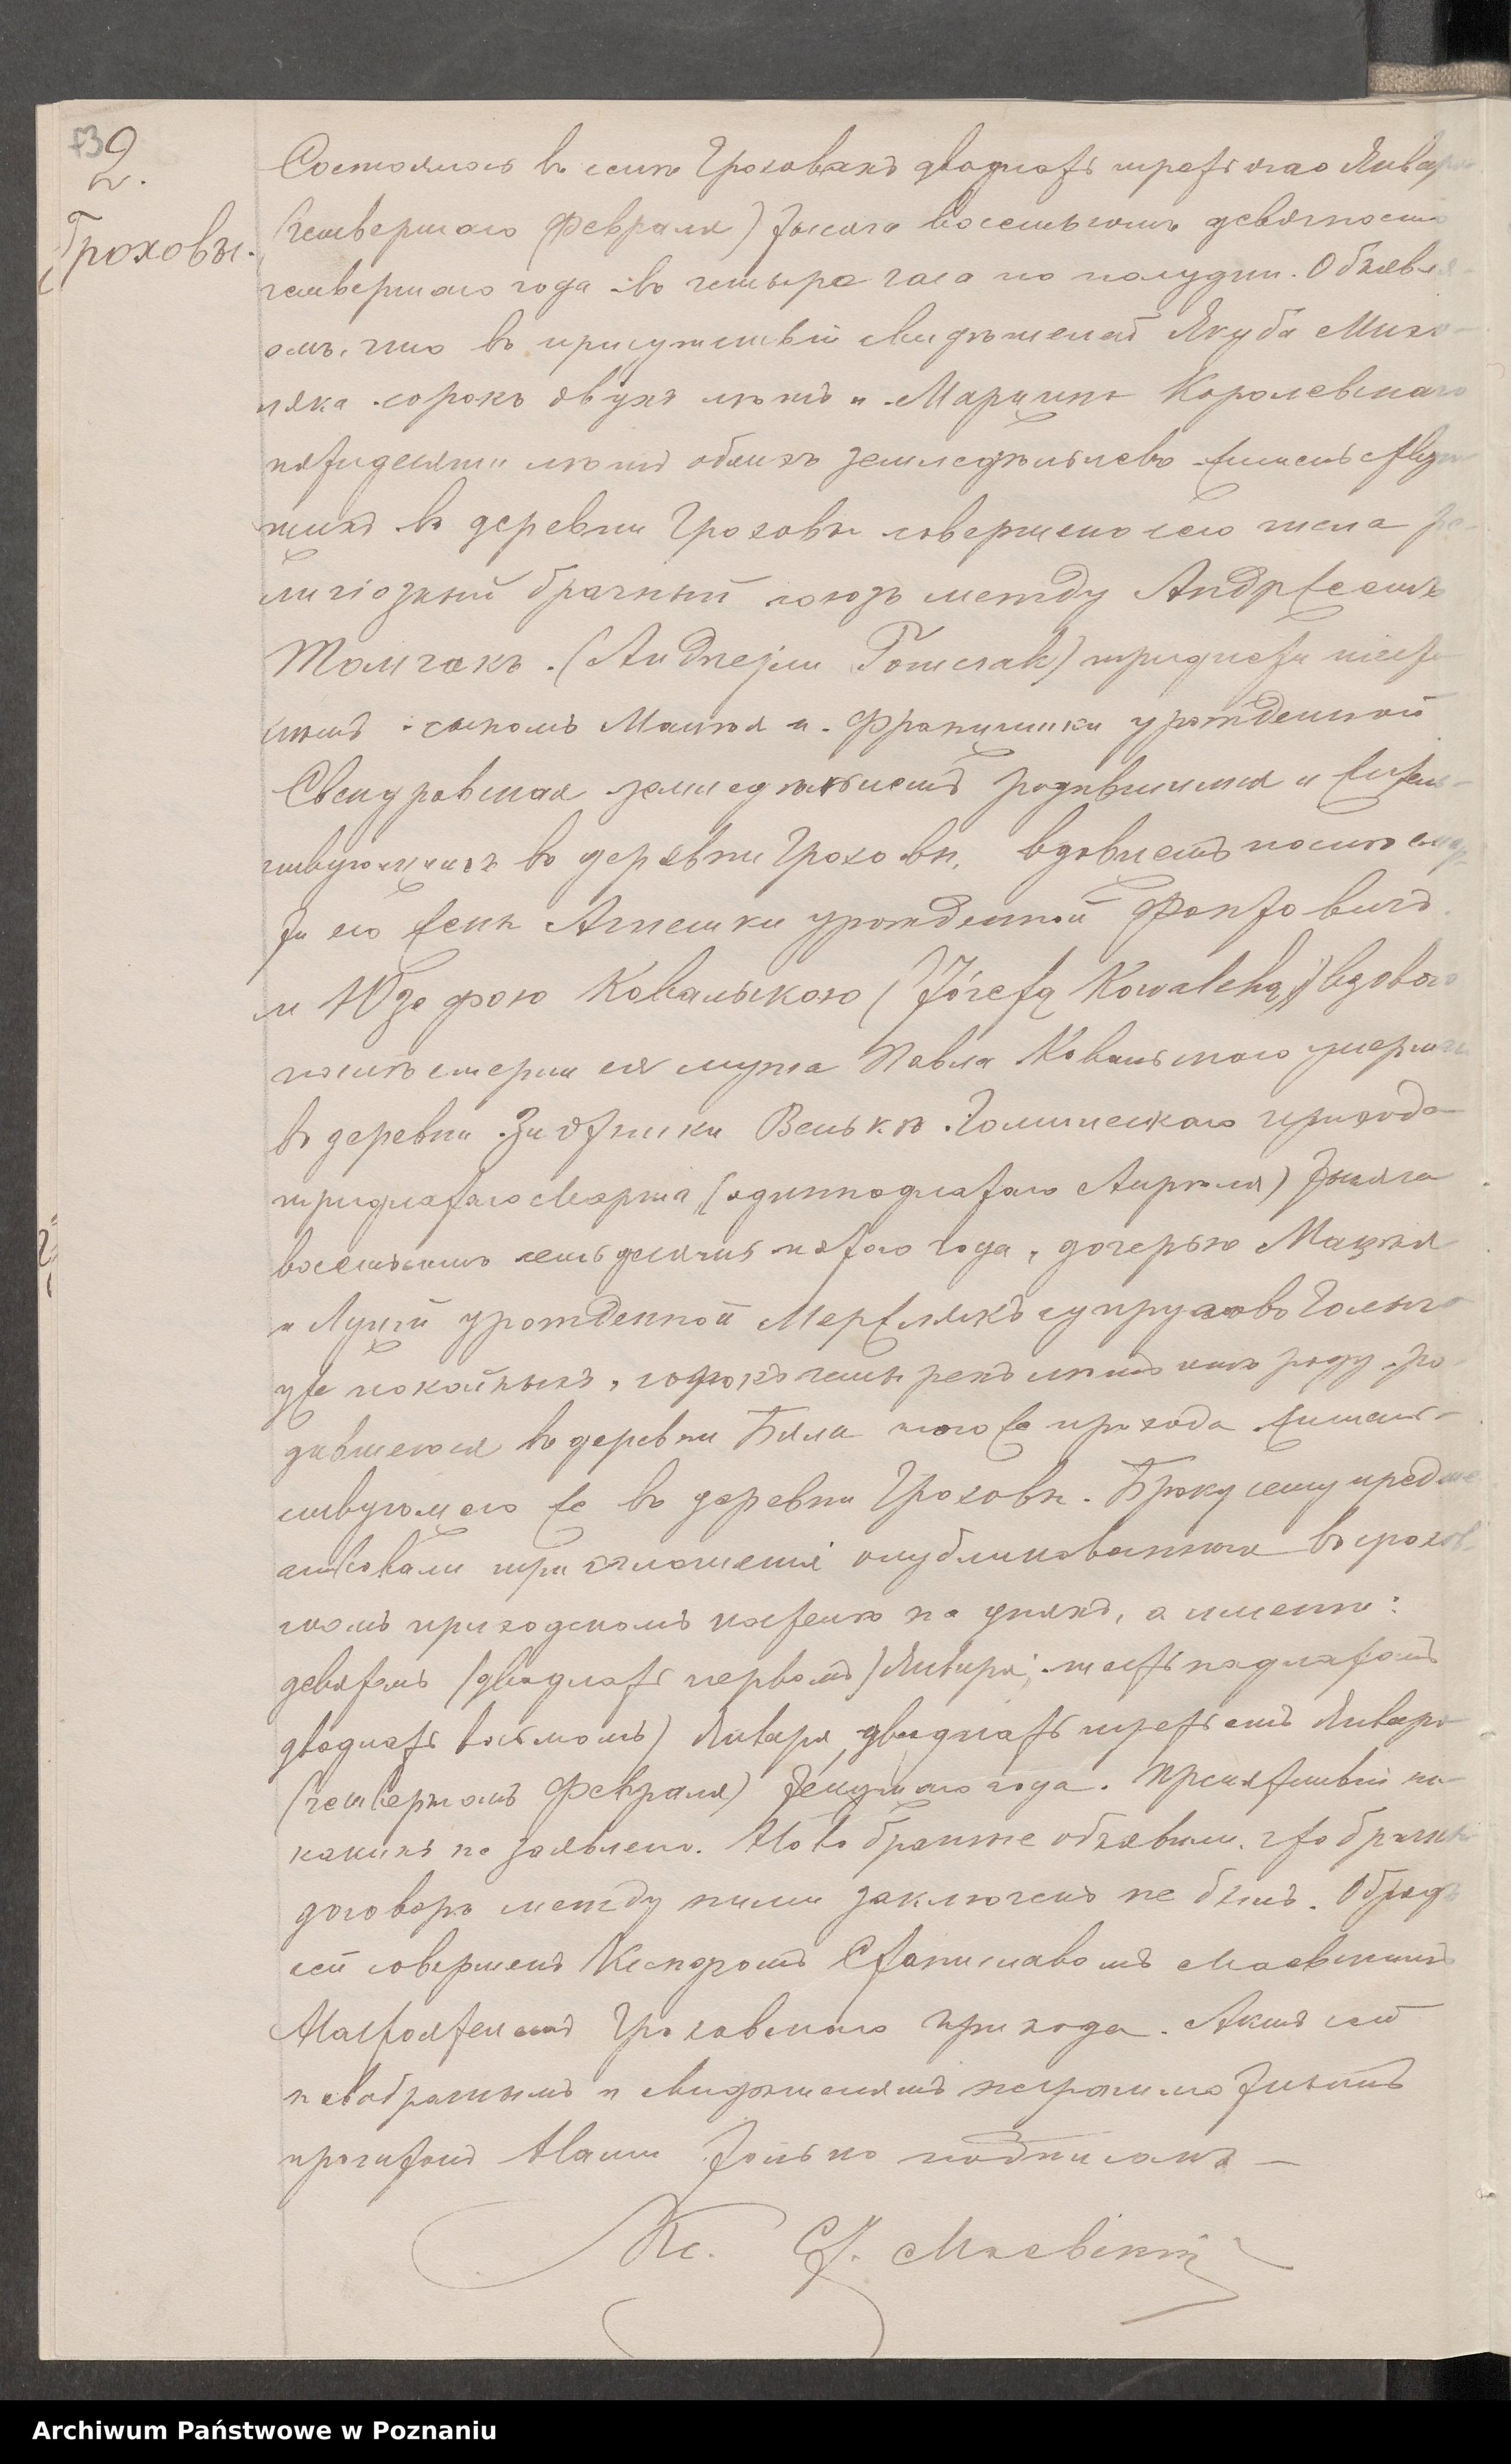 73
2.
Гроховы.
Состоялось въ селѣ Гроховахъ двадцать третьяго Января
(четвертаго Февраля) тысяча восемьсотъ девяносто
четвертаго года въ четыре часа по полудни. Объявля-
емъ, что въ присутствіи свидѣтелей Якуба Михо-
ляка сорокъ двухъ лѣтъ и Марцина Королевскаго
пятидесяти лѣтъ обоихъ земледѣльцевъ жительствую-
щихъ въ деревни Гроховы совершено сего числа ре-
лигіозный брачный союзъ между Андржеемъ
Томчакъ (Andrzejem Tomczak) тридцати шести
лѣтъ сыномъ Матѣя и Францишки урожденной
земледѣльцемъ родившимся и житель-
ствующимъ въ деревни Гроховы, вдовцемъ послѣ смер-
ти его жены Агнешки урожденной
и Юзефою Ковальскою (Józefą Kowalską) вдовою
послѣ смерти ея мужа Павла Ковальскаго умершаго
въ деревни прихода
тридцатаго Марта (одиннадцатаго Апрѣля) тысяча
восемьсотъ семьдесять пятаго года, дочерью Мацѣя
и Луціи урожденной супруговъ
уже покойныхъ, сорокъ четырехъ лѣтъ отъ роду ро-
дившеюся въ деревни Бяла того же прихода житель-
ствующею же въ деревни Гроховы. Браку сему предше-
ствовали три оглошенія опубликованныя въ грохов-
скомъ приходскомъ костелѣ по дняхъ, а именно:
девятомъ (двадцать первомъ) Января, шестьнадцатомъ
двадцать восьмомъ) Января, двадцать третьемъ Января
(четвертомъ Февраля) текущаго года. Препятствій ни-
какихъ не заявлено. Новобрачные объявили, что брачный
договоръ между ними заключенъ не былъ. Обрядъ
сей совершенъ Ксендзомъ Станиславомъ Маевскимъ
Настоятелемъ Гроховскаго прихода. Актъ сей
новобрачнымъ и свидѣтелямъ неграмотнымъ
прочитанъ Нами только подписанъ —
Кс. Ст. Маевскій
Archiwum Państwowe w Poznaniu